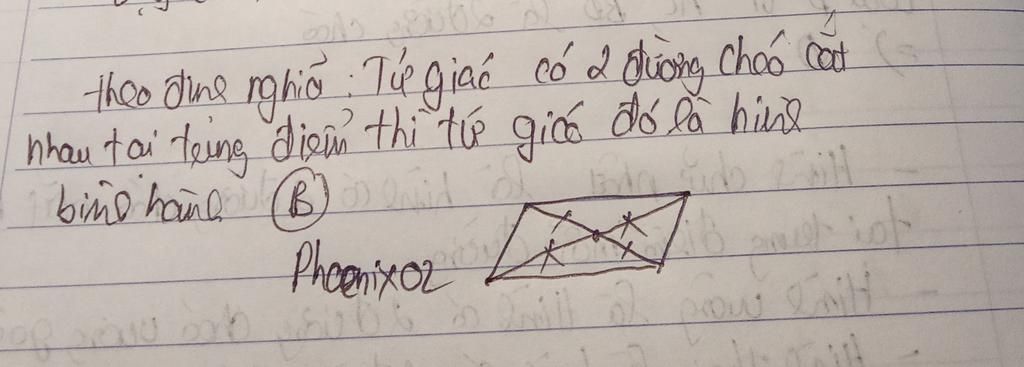 theo định nghĩa: Tứ giác có 2 đường chéo cắt
nhau tại trung điểm thì tứ giác đó là hình
bình hành. B
Phoenix02